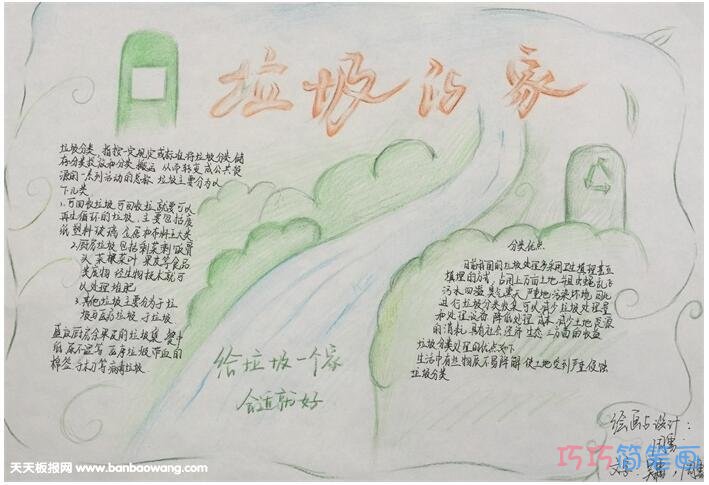 垃圾的家
垃圾分类,指按一定规定或标准将垃圾分类储
存分类投放和分类搬运,从而转变成公共资
源的一系列活动的总称.垃圾主要分为以
下几类
1.可回收垃圾,可回收垃圾就是可以
再生循环的垃圾,主要包括废
纸 塑料 玻璃 金属和布料五大类
2.厨房垃圾 包括剩菜剩饭骨
头 菜根菜叶 果皮等食品
类废物 经生物技术就可
以处理堆肥
3.其他垃圾主要分为干垃
分类优点
目前我国的垃圾处理多采用卫生填埋甚至
填埋的方式,占用上万亩土地,并且虫蝇乱飞
污水四溢 臭气熏天 严重地污染环境.因此
进行垃圾分类收集可以减少垃圾处理量
和处理设备 降低处理成本.减少土地资源
的消耗.具有社会 经济 生态 三方面的效益
垃圾分类处理的优点如下
生活中有些物质不易降解.使土地受到严重侵蚀
垃圾分类
给垃圾一个家
会适就好
绘画与设计:
天天板报网 www.banbaowang.com
巧巧简笔画